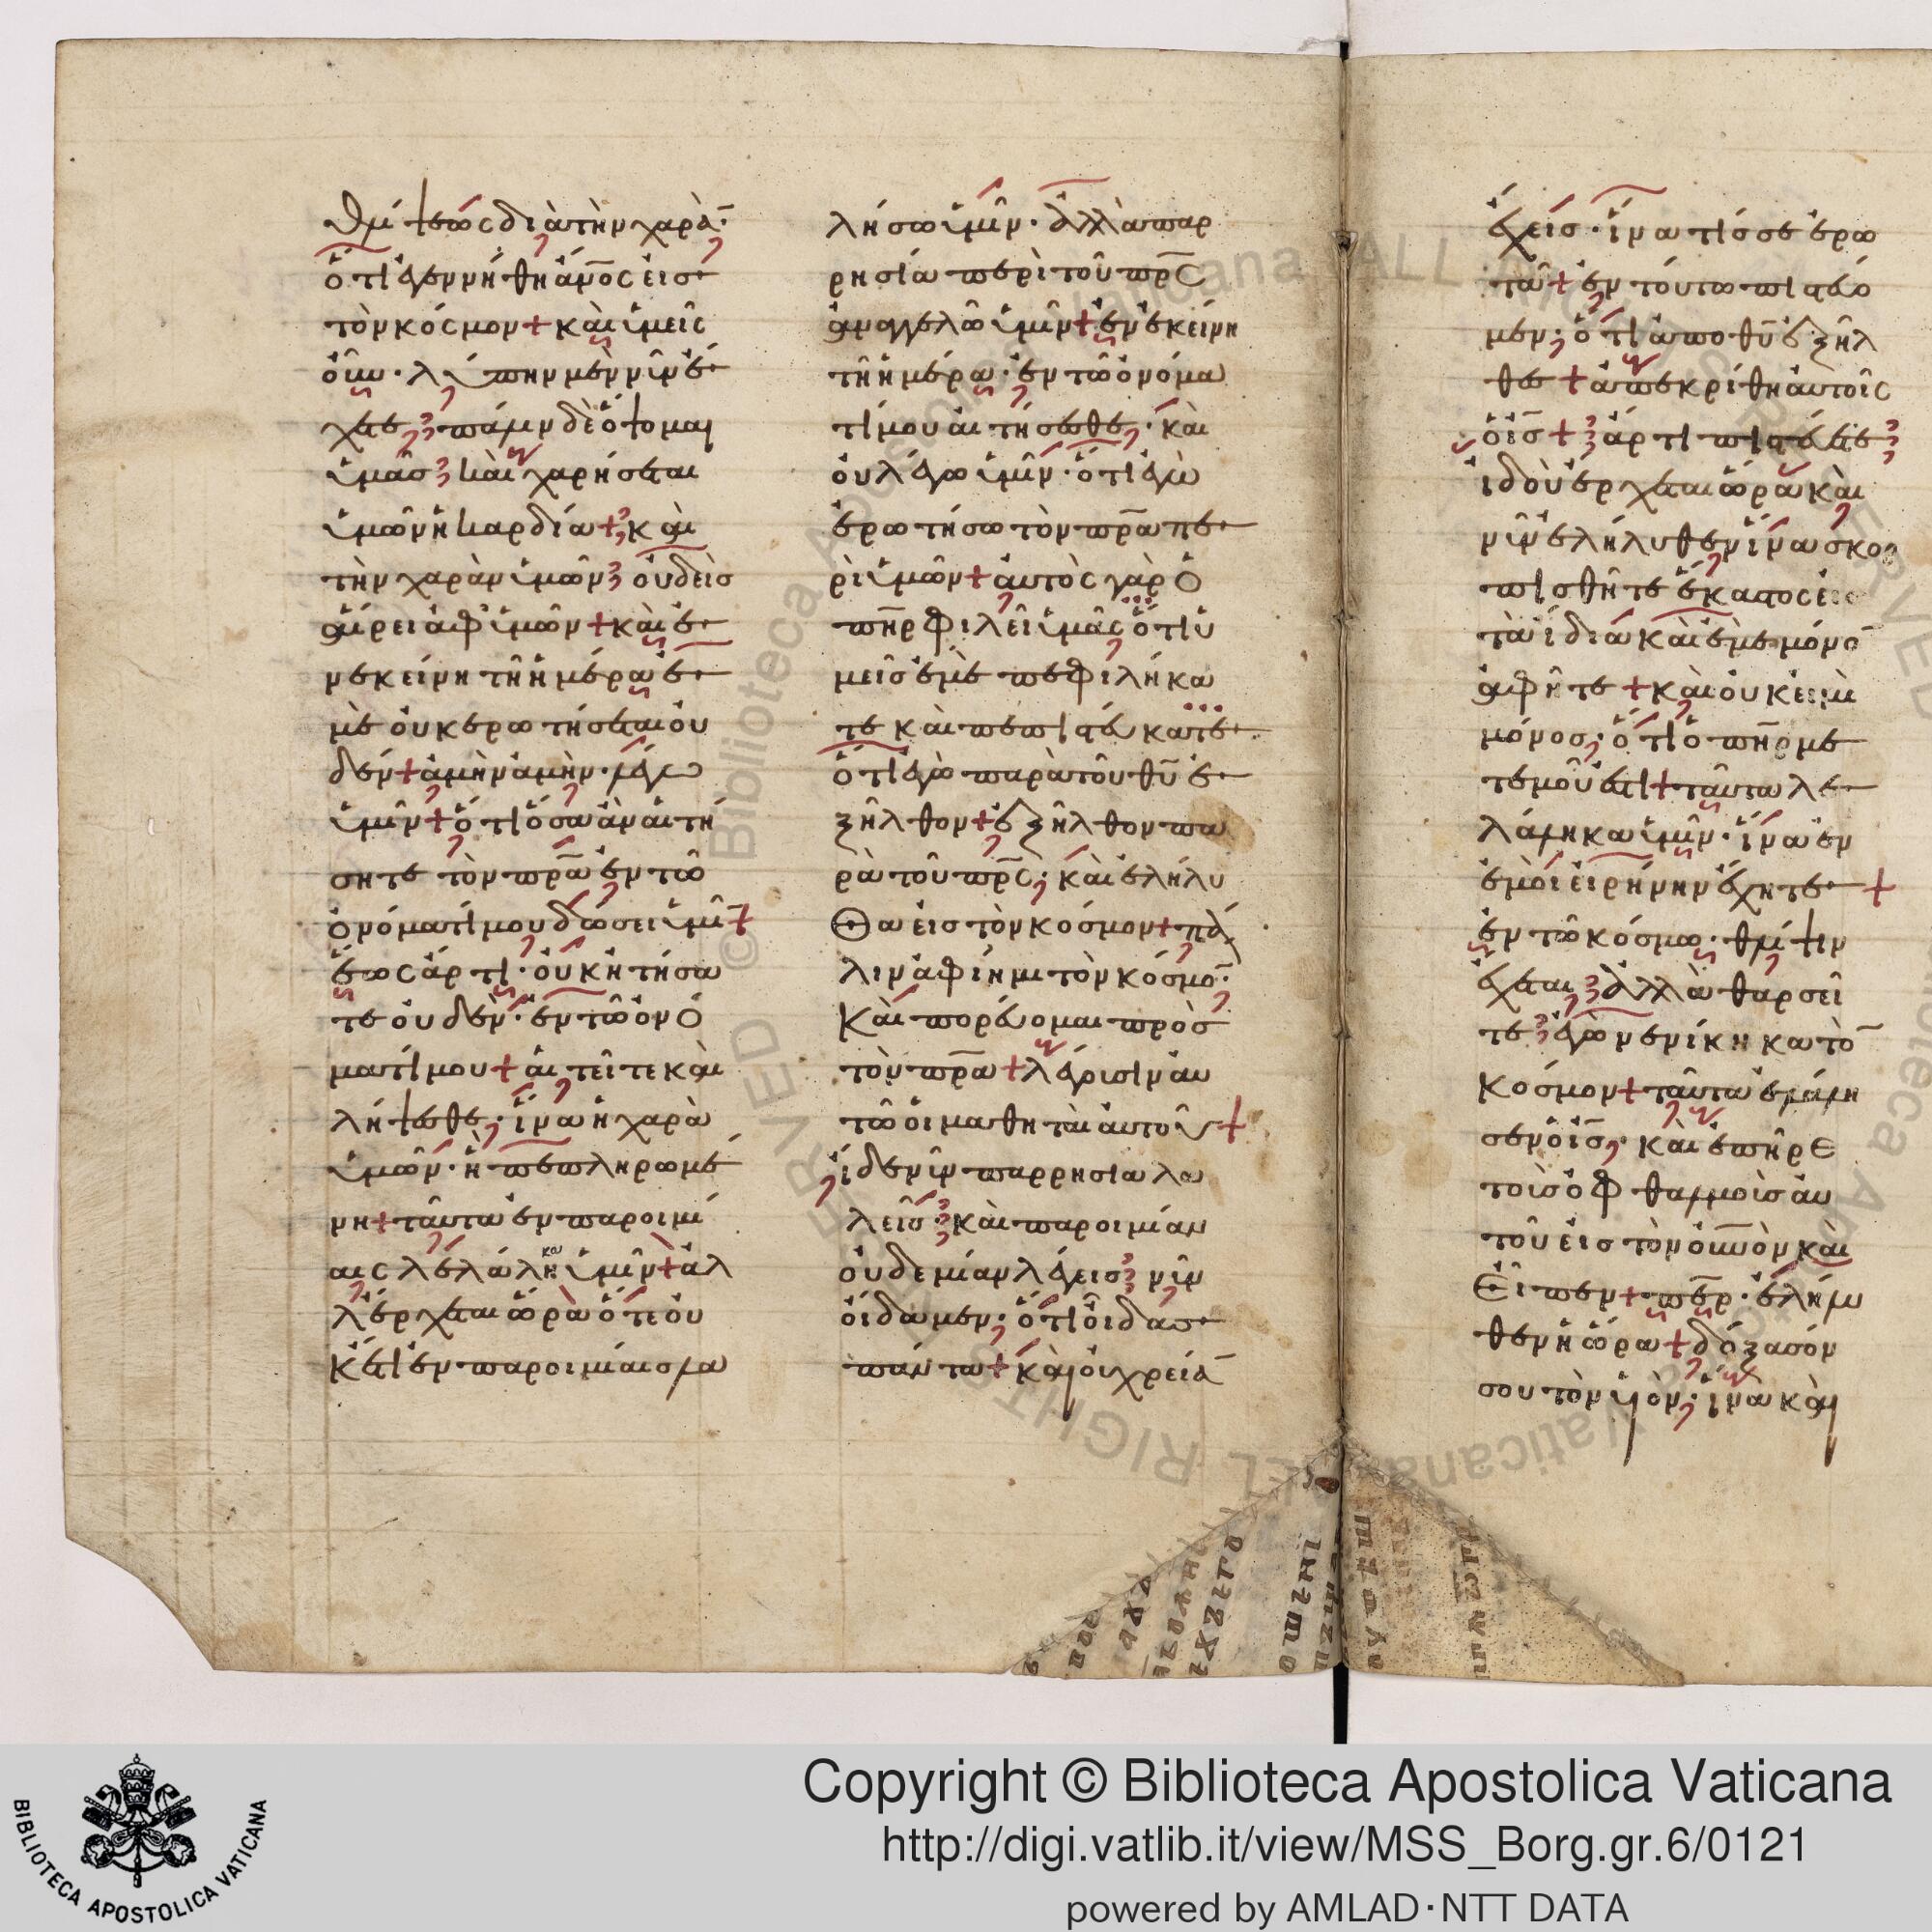 θλίψεως διὰ τὴν χαρὰ̄·
ὅτι ἐγεννήθη ἀν̅ο̅ς εἰσ
τὸν κόσμον + καὶ ὑμεῖς
οὖν· λύπην μὲν νῦν ἔ
χετε, πάλιν δὲ ὄψομαι
ὑμᾶσ καὶ χαρήσεται
ὑμῶν ἡ καρδία + καὶ
τὴν χαρὰν ὑμῶν οὐδεὶσ
αἴρει ἀφ' ὑμῶν + καὶ ἐ
ν ἐκείνη τῆ ἡμέρα ἐ
μὲ οὐκ ερωτήσεται οὐ
δέν + ἀμὴν ἀμὴν· λέγω
ὑμῖν + ὅτι ὅσα ἀν αἰτή
σητε τὸν π̅ρ̅α̅ ἐν τῶ
ὀνόματί μου δώσει ὑμῖ̄ +
ἕως ἄρτι· οὐκ ἠτήσα
τε οὐδέν· ἐν τῶ ὀνό
ματί μου + αἰτεῖτε καὶ
λήψεσθε· ἵνα ἡ χαρὰ
ὑμῶν· ἦ πεπληρωμέ
νη + ταῦτα ἐν παροιμί
αις λελάληκα ὑμῖν + ἀλ
λ' ἔρχεται ὥρα ὅτε οὐ
κέτι ἐν παροιμίαισ λα
λήσω ὑμῖν· ἀλλὰ παρ
ρησία περὶ τοῦ π̅ρ̅σ̅
ἀναγγελῶ ὑμῖν + ἐν ἐκείνη
τῆ ἡμέρα· ἐν τῶ ὀνόμα
τί μου αἰτήσεσθε· καὶ
οὐ λέγω ὑμῖν· ὅτι ἐγὼ
ἐρωτήσω τὸν π̅ρ̅α̅ πε
ρὶ ὑμῶν + ἀυτὸς γὰρ ὁ
π̅η̅ρ̅ φιλεῖ ὑμᾶς ὅτι ὑ
μεῖσ ἐμὲ πεφιλήκα
τε καὶ πεπιστεύκατε
ὅτι ἐγὼ παρὰ τοῦ θ̅υ̅ ἐ
ξῆλθον + ἐξῆλθον πα
ρὰ τοῦ π̅ρ̅σ̅· καὶ ἐλήλυ
θα εἰσ τὸν κόσμον + πά
λιν ἀφίημι τὸν κόσμο̄·
καὶ πορεύομαι πρὸσ
τὸν π̅ρ̅α̅ + λέγουσιν ἀυ
τῶ οἱ μαθηταὶ ἀυτοῦ +
ἴδε νῦν παρρησία λα
λεῖσ καὶ παροιμίαν
οὐδεμίαν λέγεισ νῦν
οἴδαμεν· ὅτι οἶδασ
πάντα + καὶ οὐ χρείᾱ
ἔχεισ· ἵνα τίσ σε ἐρω
τᾶ + ἐν τούτω πιστεύο
μεν· ὅτι ἀπὸ θ̅υ̅ ἐξῆλ
θες + ἀπεκρίθη ἀυτοῖς
ὁ ἰ̅σ̅ + ἄρτι πιστεύετε
ἰδοὺ ἔρχεται ὥρα καὶ
νῦν ἐλήλυθεν ἵνα σκορ
πισθῆτε ἕκαστος εἰς
τὰ ἴδια καὶ ἐμὲ μόνο̄
ἀφῆτε + καὶ οὐκ εἰμὶ
μόνοσ· ὅτι ὁ π̅η̅ρ̅ με
τ' ἐμοῦ ἐστι + ταῦτα λε
λάληκα ὑμῖν· ἵνα ἐν
ἐμοὶ εἰρήνην ἔχητε +
ἐν τῶ κόσμω· θλίψιν
ἔχεται ἀλλὰ θαρσεῖ
τε ἐγὼ νενίκηκα τὸ̄
κόσμον + ταῦτα ἐλάλη
σεν ὁ ἰ̅σ̅· καὶ ἐπῆρε
τοὺσ ὀφθαλμοὺσ ἀυ
τοῦ εἰσ τὸν ο̅υ̅ν̅ὸν καὶ
εἶπεν + π̅ε̅ρ̅· ἐλήλυ
θεν ἡ ὥρα + δόξασόν
σου τὸν ὑιὸν· ἵνα καὶ
Copyright © Biblioteca Apostolica Vaticana
http://digi.vatlib.it/view/MSS_Borg.gr.6/0121
powered by AMLAD·NTT DATA
BIBLIOTECA APOSTOLICA VATICANA